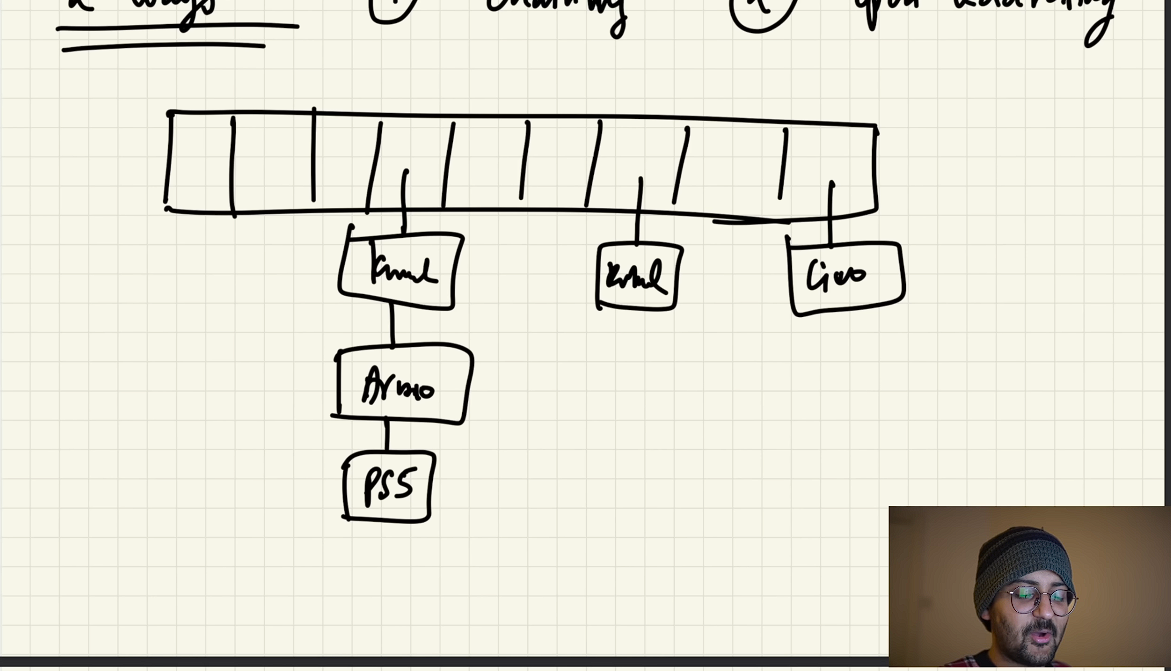 2 ways ① chaining ② open addressing
Kunal Rahul Ciao
Arpio
PSS